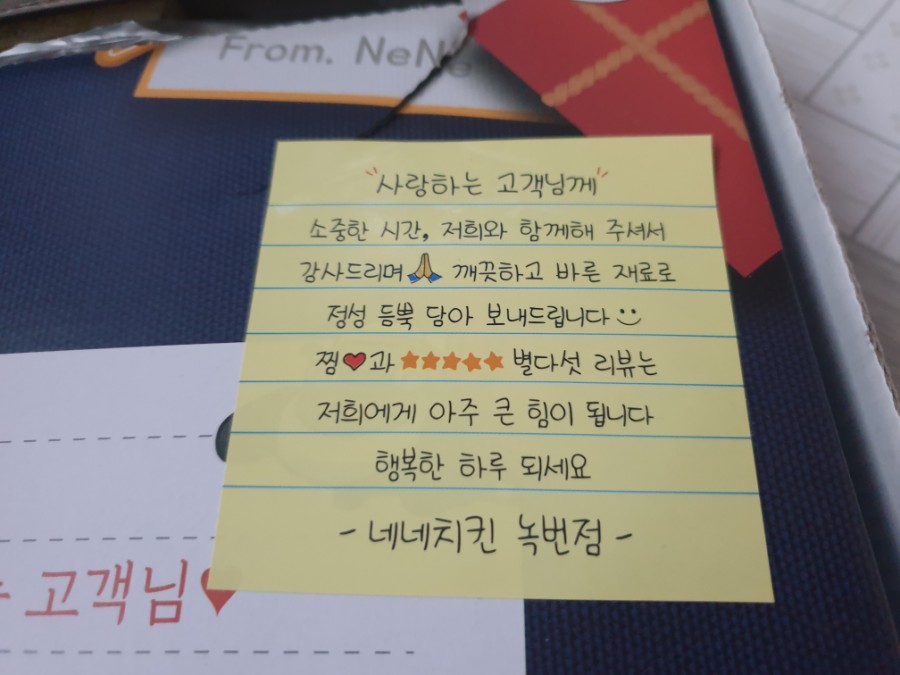 From. NeNe
"사랑하는 고객님께"
소중한 시간, 저희와 함께해 주셔서
감사드리며🙏 깨끗하고 바른 재료로
정성 듬뿍 담아 보내드립니다
찜❤과 ★★★★★ 별다섯 리뷰는
저희에게 아주 큰 힘이 됩니다
행복한 하루 되세요
- 네네치킨 녹번점 -
고객님♥